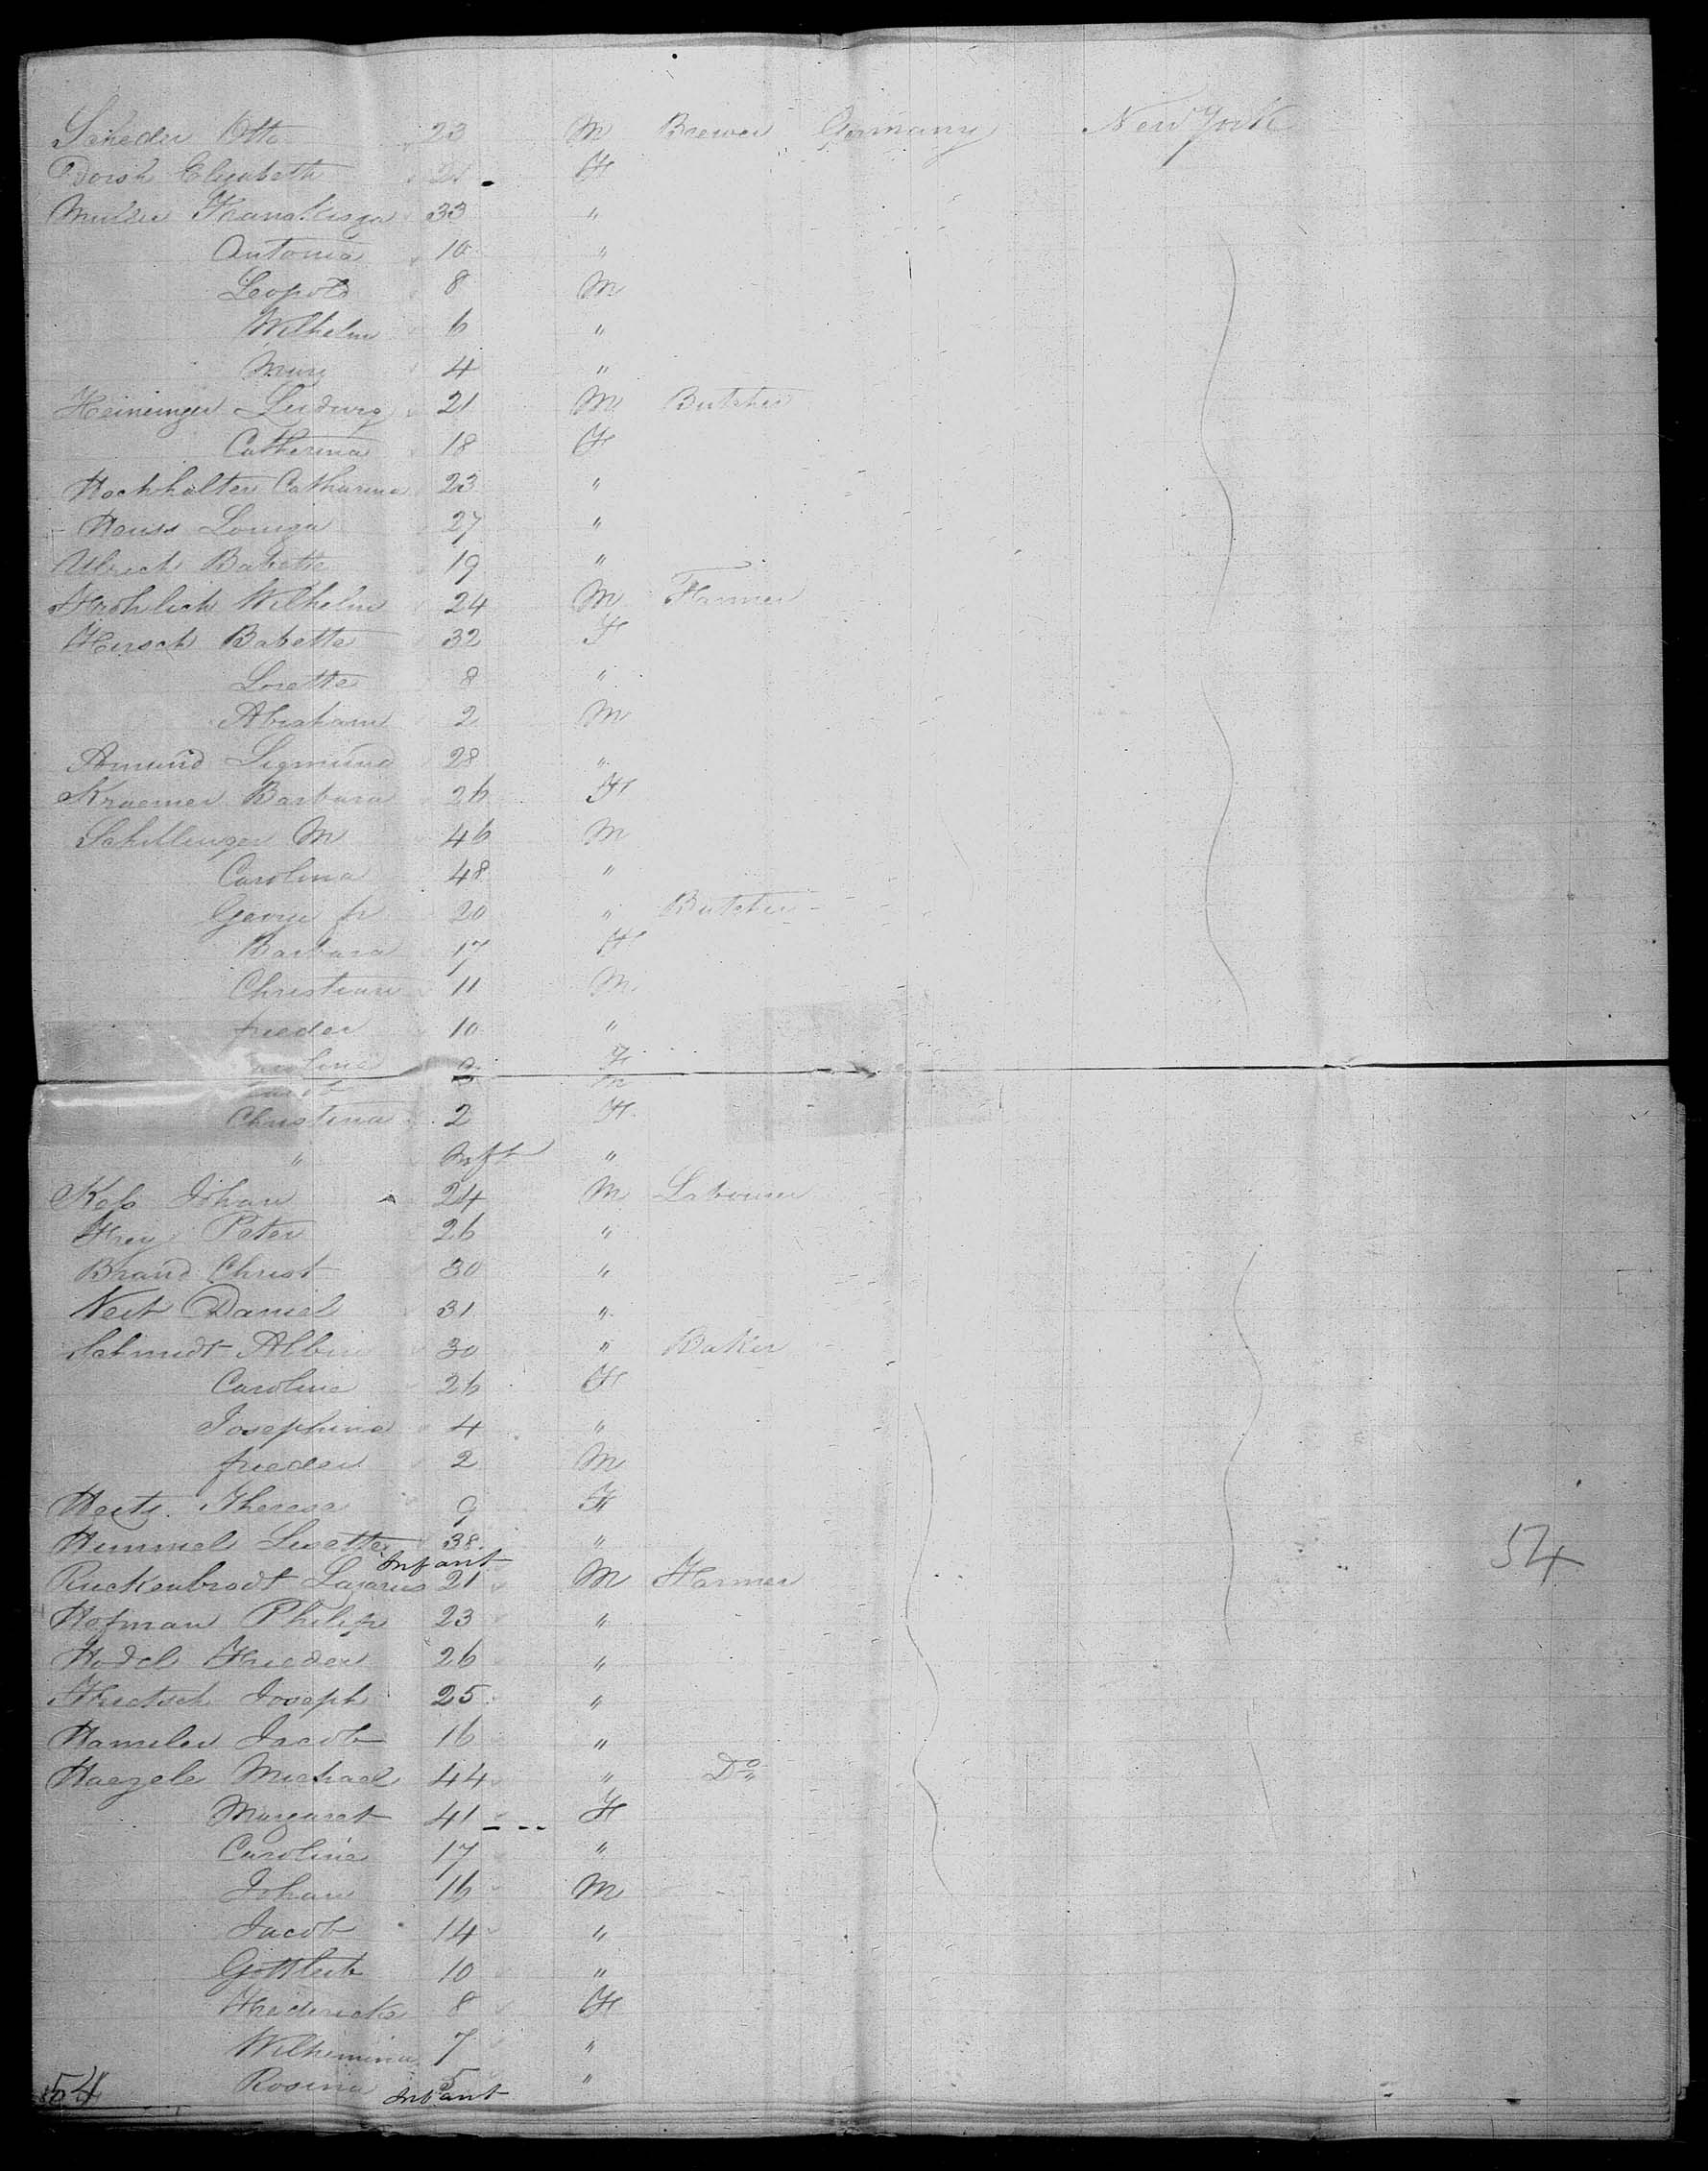 Scheder Otto 23 M Brewer Germany New York
Dorsh Elizabeth 21 F
Muller Franziska 33 "
Antonia 10 "
Leopold 8 M
Wilhelm 6 "
Mary 4 "
Heininger Ludwig 21 M Butcher
Catherina 18 F
Hochhalter Catharina 23 "
Hauss Louiza 27 "
Ulrich Babette 19 "
Frohlich Wilhelm 24 M Farmer
Hirsch Babette 32 F
Lorette 8 "
Abraham 2 M
Amund Sigmund 28 "
Kraemer Barbara 26 F
Schillinger M 46 M
Carolina 48 "
George fr 20 " Butcher
Barbara 17 F
Christian 11 M
frieder 10 "
F
M
Christina 2 F
" Inft "
Johan 24 M Labourer
Frey Peter 26 "
Brand Christ 30 "
Neit Daniel 31 "
Schmidt Albin 30 " Baker
Caroline 26 F
Josephina 4 "
frieder 2 M
Theresa 9 F
Himmel Lisette 38 "
Infant
Ruckenbrodt Lazarus 21 M Farmer
Hofman Philip 23 "
Hodel Frieder 26 "
Frietsch Joseph 25 "
Hamsler Jacob 16 "
Haegele Michael 44 " Do
Margaret 41 F
Caroline 17 "
Johan 16 M
Jacob 14 "
Gottlieb 10 "
Fredericka 8 F
Wilhimina 7 "
Rosina 5 "
Infant
54
54